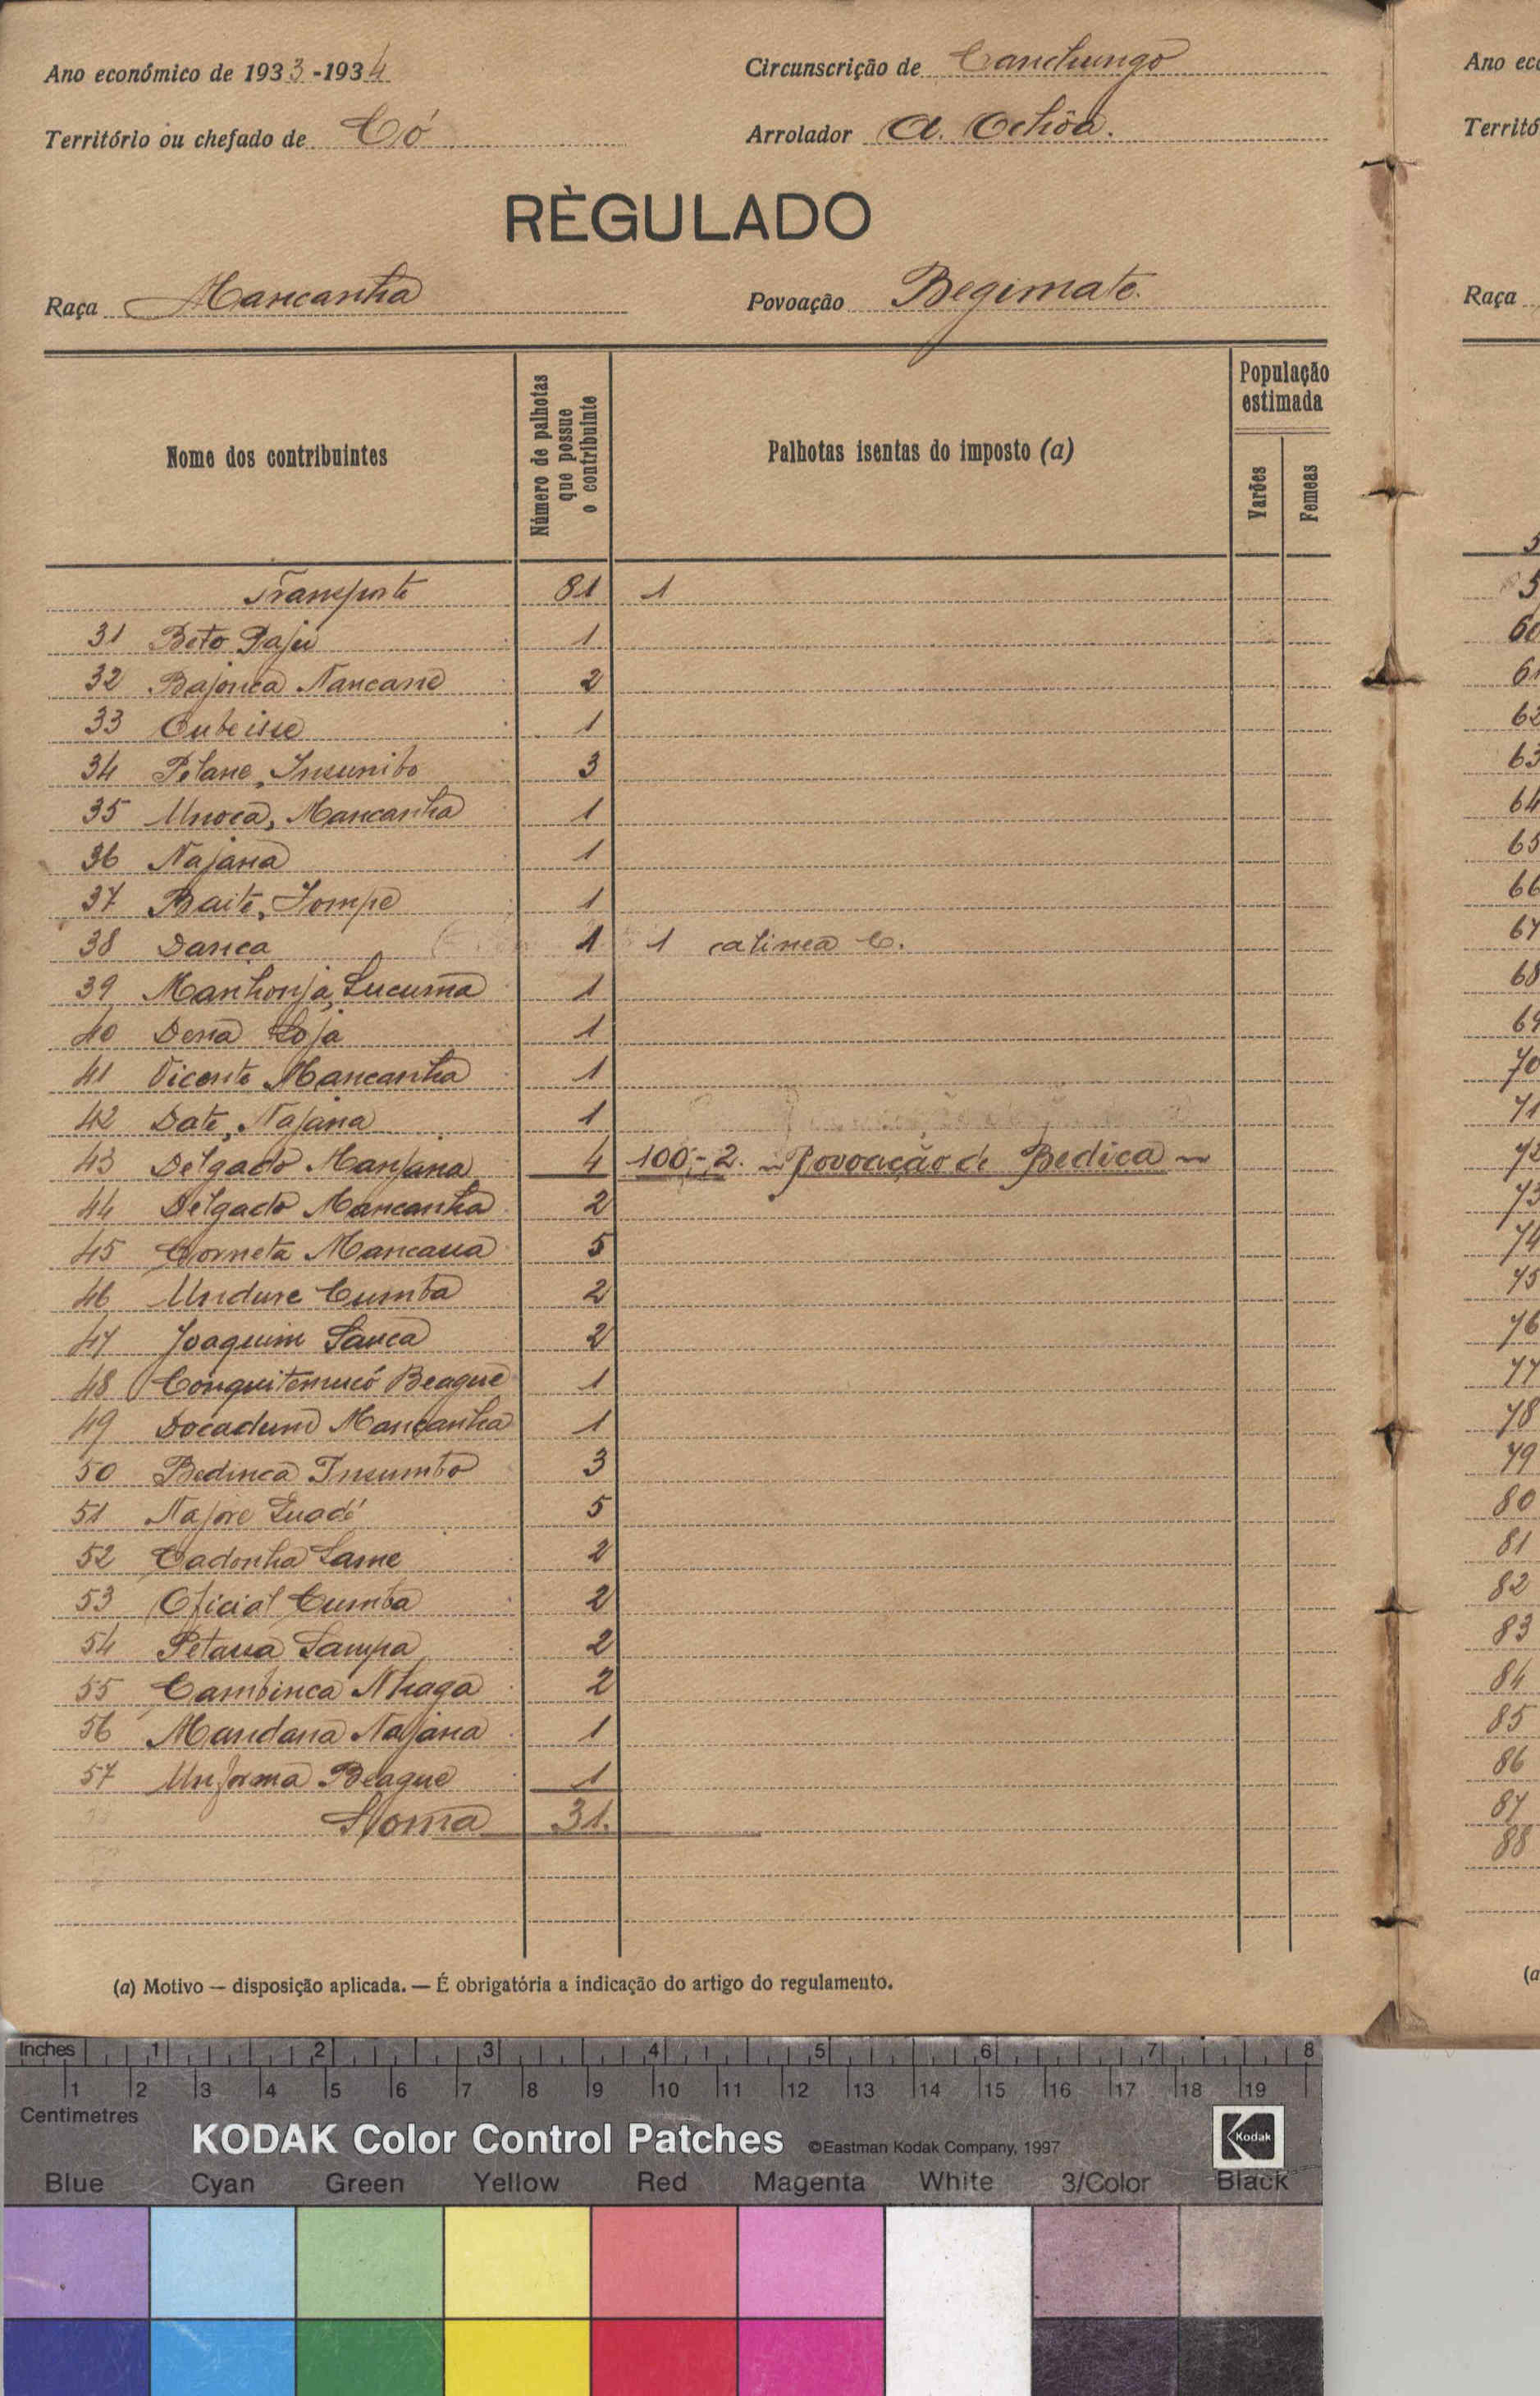 Ano económico de 1933-1934 Circunscrição de Canchungo
Território ou chefado de Có Arrolador A. Ochôa.
RÈGULADO
Raça Mancanha Povoação Begimate.
Nome dos contribuintes
Número de palhotas que possue o contribuinte
Palhotas isentas do imposto (a)
População estimada
Varões
Femeas
Transporte 81 1
31 Beto Paju 1
32 Bajonca Nancane 2
33 Oubeisse 1
34 Petane, Insumbo 3
35 Unoca, Mancanha 1
36 Najana 1
37 Baite, Jompe 1
38 Danca 1 1 alinea C.
39 Manhonja, Lucuma 1
40 Dena Loja 1
41 Vicente Mancanha 1
42 Date, Najana 1
43 Delgado Manjana 4 100,-2. Povoação de Bedica
44 Delgado Mancanha 2
45 Corneta Mancaua 5
46 Undure Cumba 2
47 Joaquim Sanca 2
48 Beague 1
49 Docadund Mancanha 1
50 Bedinca Insumbo 3
51 Najore Quadé 5
52 Cadonha Same 2
53 Oficial Cumba 2
54 Petaua Sampa 2
55 Cambinca Nhaga 2
56 Mandana Najana 1
57 Unforma Beague 1
Soma 31.
(a) Motivo — disposição aplicada. — É obrigatória a indicação do artigo do regulamento.
Ano eco
Territó
Raça
60
61
62
63
64
65
66
67
68
69
70
71
72
73
74
75
76
77
78
79
80
81
82
83
84
85
86
87
88
(a
Inches 1 2 3 4 5 6 7 8
1 2 3 4 5 6 7 8 9 10 11 12 13 14 15 16 17 18 19
Centimetres
KODAK Color Control Patches ©Eastman Kodak Company, 1997 Kodak
Blue Cyan Green Yellow Red Magenta White 3/Color Black